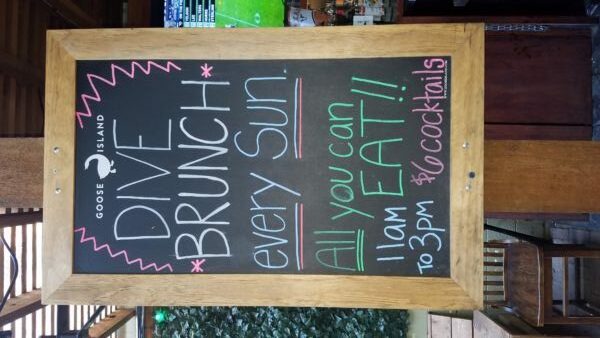 GOOSE ISLAND
DIVE
*BRUNCH*
every Sun.
All you can
EAT!!
11am
TO 3PM
$6 cocktails